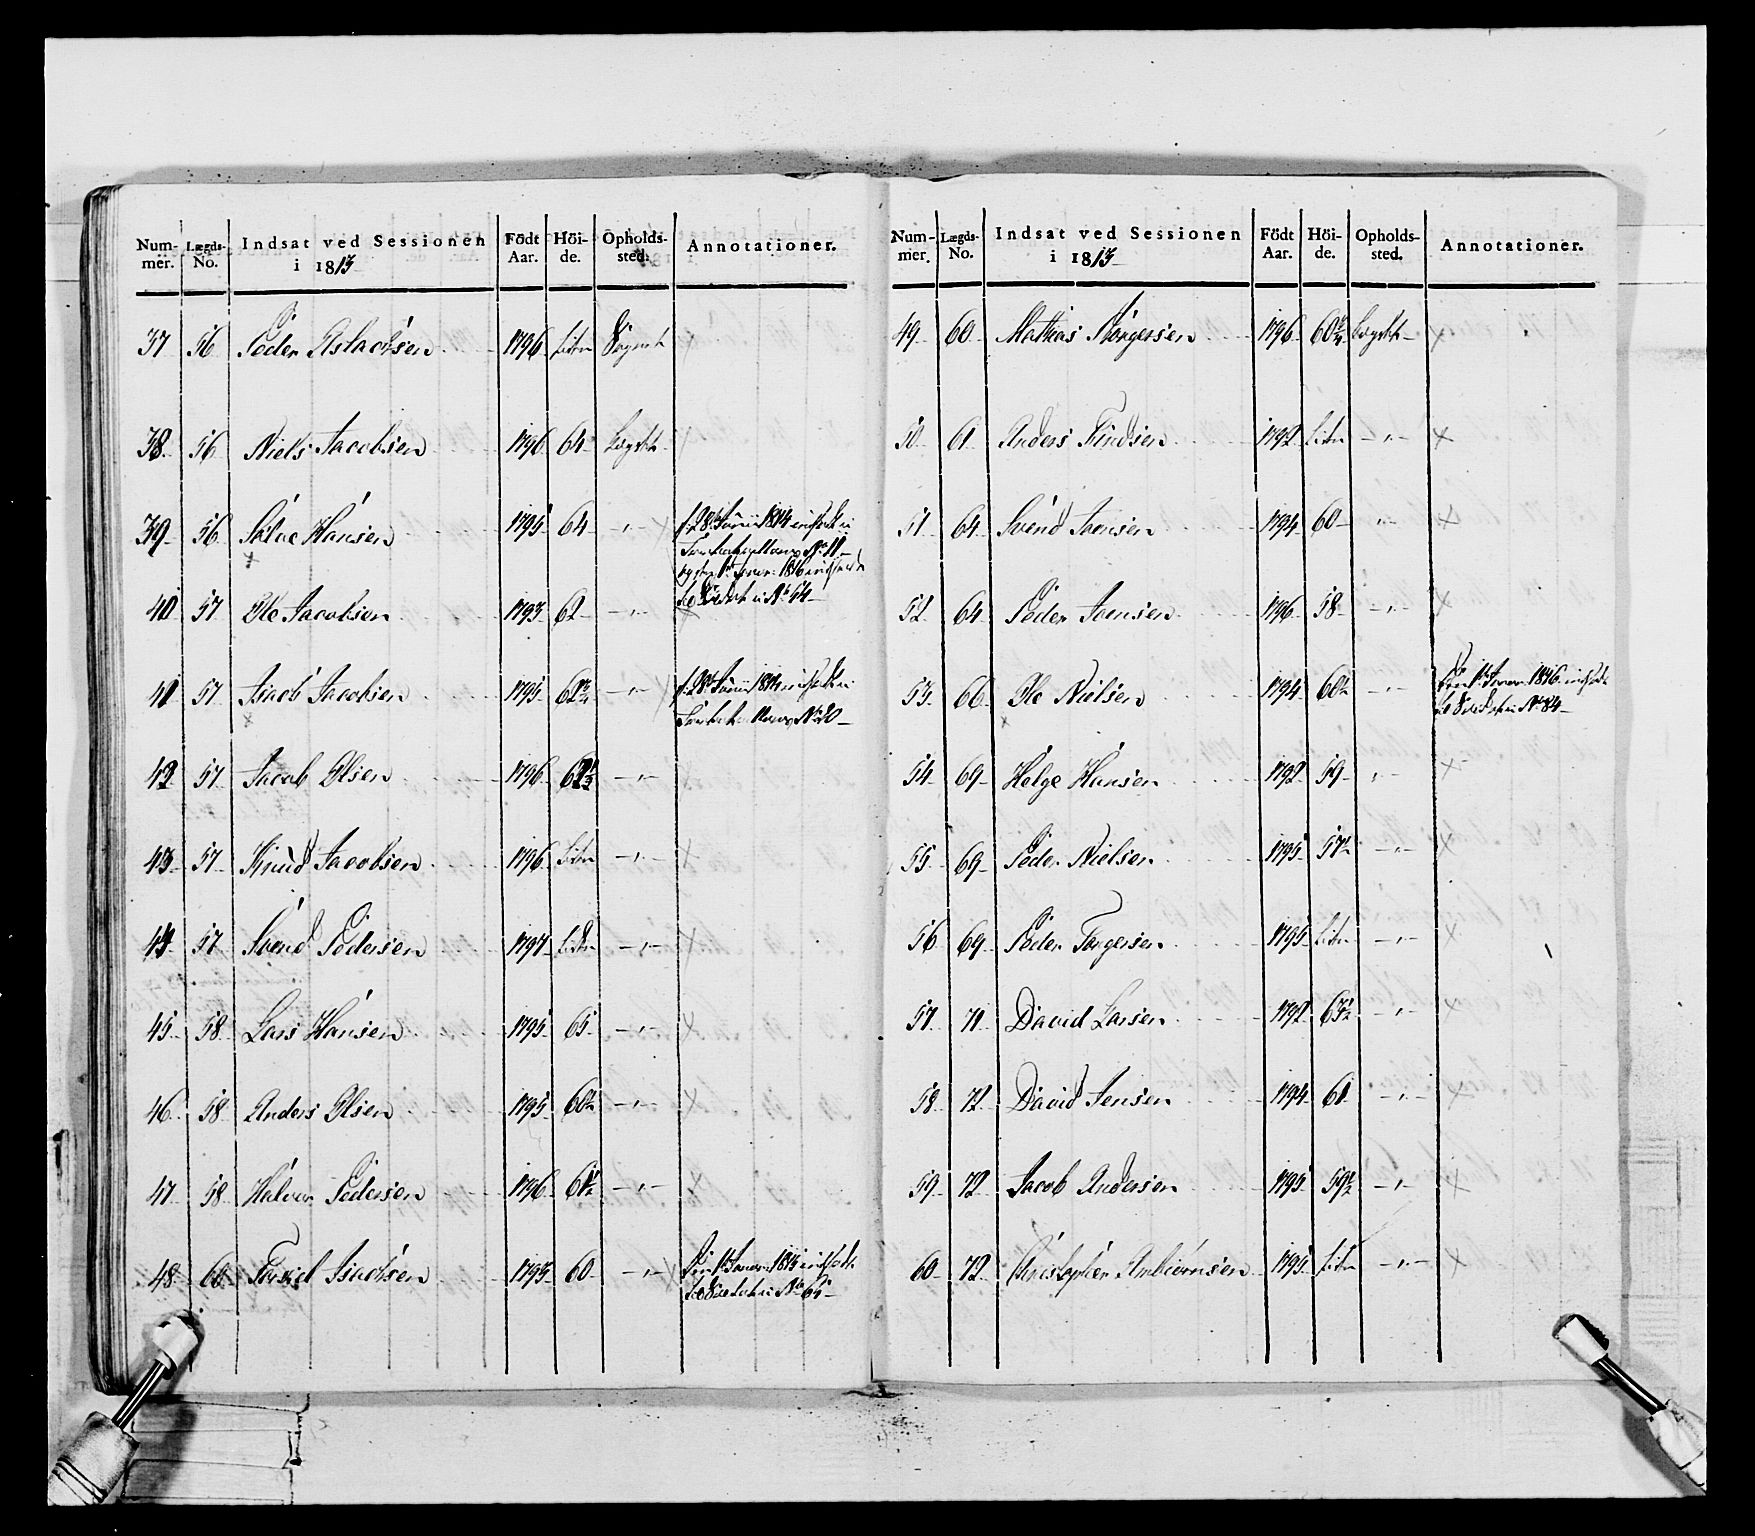 Num- Lægds- Indsat ved Sessionen Födt Höi- Opholds- Annotationer.
mer. No. i 1813 Aar. de. sted.
37 56 Peder Aslachsen 1796 Liden
38 56 Niels Jacobsen 1796 64 Lægdet
39 56 Salve Hansen 1795 64 -"-
40 57 Ole Jacobsen 1793 62 -"-
41 57 Isach Jacobsen 1795 -"-
42 57 Jacob Olsen 1796 -"-
43 57 Knud Jacobsen 1796 Liden -"- ×
44 57 Svend Pedersen 1797 Liden -"- ×
45 58 Lars Hansen 1795 65 -"- ×
46 58 Anders Olsen 1795 60½ -"- ×
47 58 Halvor Pedersen 1796 61½ -"- ×
48 60 Isachsen 1793 60 -"-
Num- Lægds- Indsat ved Sessionen Födt Höi- Opholds- Annotationer.
mer. No. i 1813 Aar. de. sted.
49 60 Mathias Börgersen 1796 60¾ Lægdet ×
50 61 Anders Findsen 1792 Liden -"- ×
51 64 Svend Joensen 1794 60 -"- ×
52 64 Peder Joensen 1796 58 -"- ×
53 66 Ole Nielsen 1794 60½ -"-
54 69 Helge Hansen 1792 59 -"- ×
55 69 Peder Nielsen 1795 57½ -"- ×
56 69 Peder Torgersen 1795 Liden -"- ×
57 71 David Larsen 1792 63½ -"- ×
58 72 David Jensen 1794 61 -"- ×
59 72 Jacob Andersen 1795 59½ -"- ×
60 72 Christopher Anbiörnsen 1795 Liden -"- ×